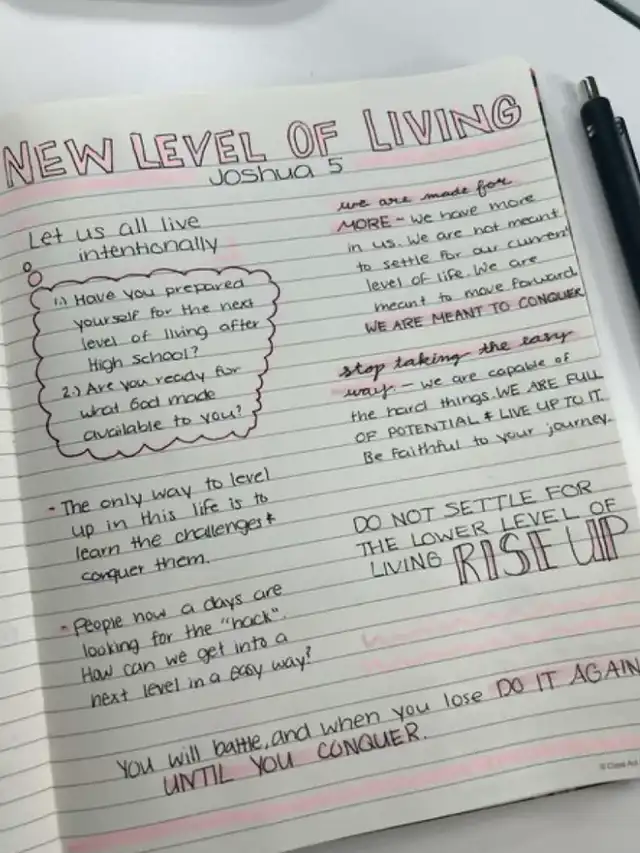 NEW LEVEL OF LIVING
Joshua 5
Let us all live
intentionally
1.) Have you prepared
yourself for the next
level of living after
High school?
2.) Are you ready for
what God made
available to you?
- The only way to level
up in this life is to
learn the challenges &
conquer them.
- People now a days are
looking for the "hack".
How can we get into a
next level in a easy way?
we are made for
MORE - We have more
in us. We are not meant
to settle for our current
level of life. We are
meant to move forward
WE ARE MEANT TO CONQUER
stop taking the easy
way. - We are capable of
the hard things. WE ARE FULL
OF POTENTIAL & LIVE UP TO IT.
Be faithful to your journey.
DO NOT SETTLE FOR
THE LOWER LEVEL OF
LIVING RISE UP
You will battle, and when you lose DO IT AGAIN
UNTIL YOU CONQUER.